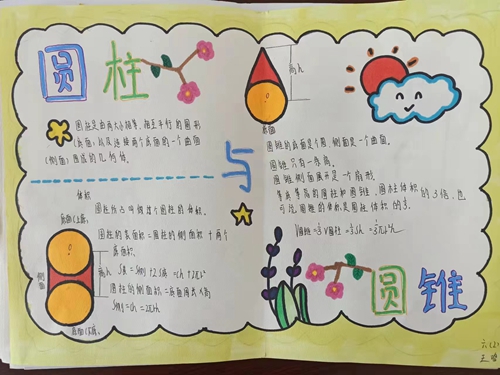 圆柱
圆柱是由两大小相等、相互平行的圆形
(底面)以及连接两个底面的一个曲面
(侧面)围成的几何体。
体积
底面(上底)
圆柱所占
圆柱的体积。
圆柱的表面积=圆柱的侧面积+两个
底面积
侧面
高h
S表=S侧+2S底=Ch+2πr²
圆柱的侧面积=底面周长×高
S侧=Ch=2πrh
底面(下底)
与
高h
底面
圆锥的底面是个圆,侧面是一个曲面。
圆锥只有一条高。
圆锥侧面展开是一个扇形。
等底等高的圆柱和圆锥,圆柱体积的3倍,也
可说圆锥的体积是圆柱体积的⅓。
V圆锥=⅓V圆柱=⅓Sh=⅓πr²h
圆锥